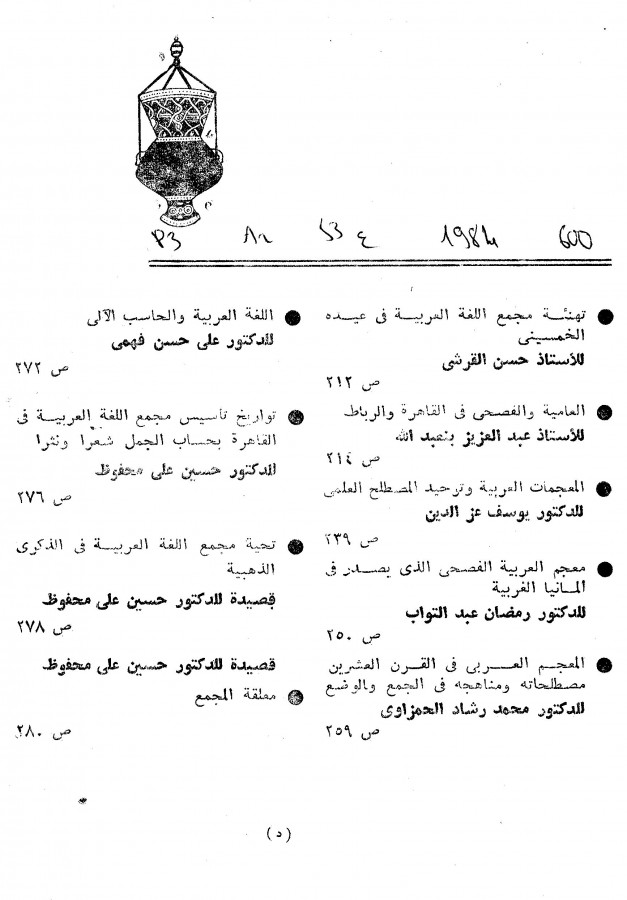 P3 A2 53 ع 1984 600
تهنئـة مجمع اللغة العربيـة فى عيـده
الخمسينى
للأستاذ حسن القرشى
ص ٢١٢
العامية والفصحى فى القاهرة والرباط
للأستاذ عبد العزيز بنعبد الله
ص ٢١٤
المعجمات العربية وتوحيد المصطلح العلمى
للدكتور يوسف عز الدين
ص ٢٣٩
معجم العربية الفصحى الذى يصـدر فى
المانيا الغربية
للدكتور رمضان عبد التواب
ص ٢٥٠
المعجم العـربى فى القـرن العشرين
مصطلحاته ومناهجه فى الجمع والوضـع
للدكتور محمد رشاد الحمزاوى
ص ٢٥٩
اللغة العربية والحاسب الآلى
للدكتور على حسن فهمى
ص ٢٧٢
تواريخ تأسيس مجمع اللغة العربيـة فى
القاهرة بحساب الجمل شعرا ونثرا
للدكتور حسين على محفوظ
ص ٢٧٦
تحية مجمع اللغة العربيـة فى الذكرى
الذهبية
قصيدة للدكتور حسين على محفوظ
ص ٢٧٨
قصيدة للدكتور حسين على محفوظ
معلقة المجمع
ص ٢٨٠
(٥)